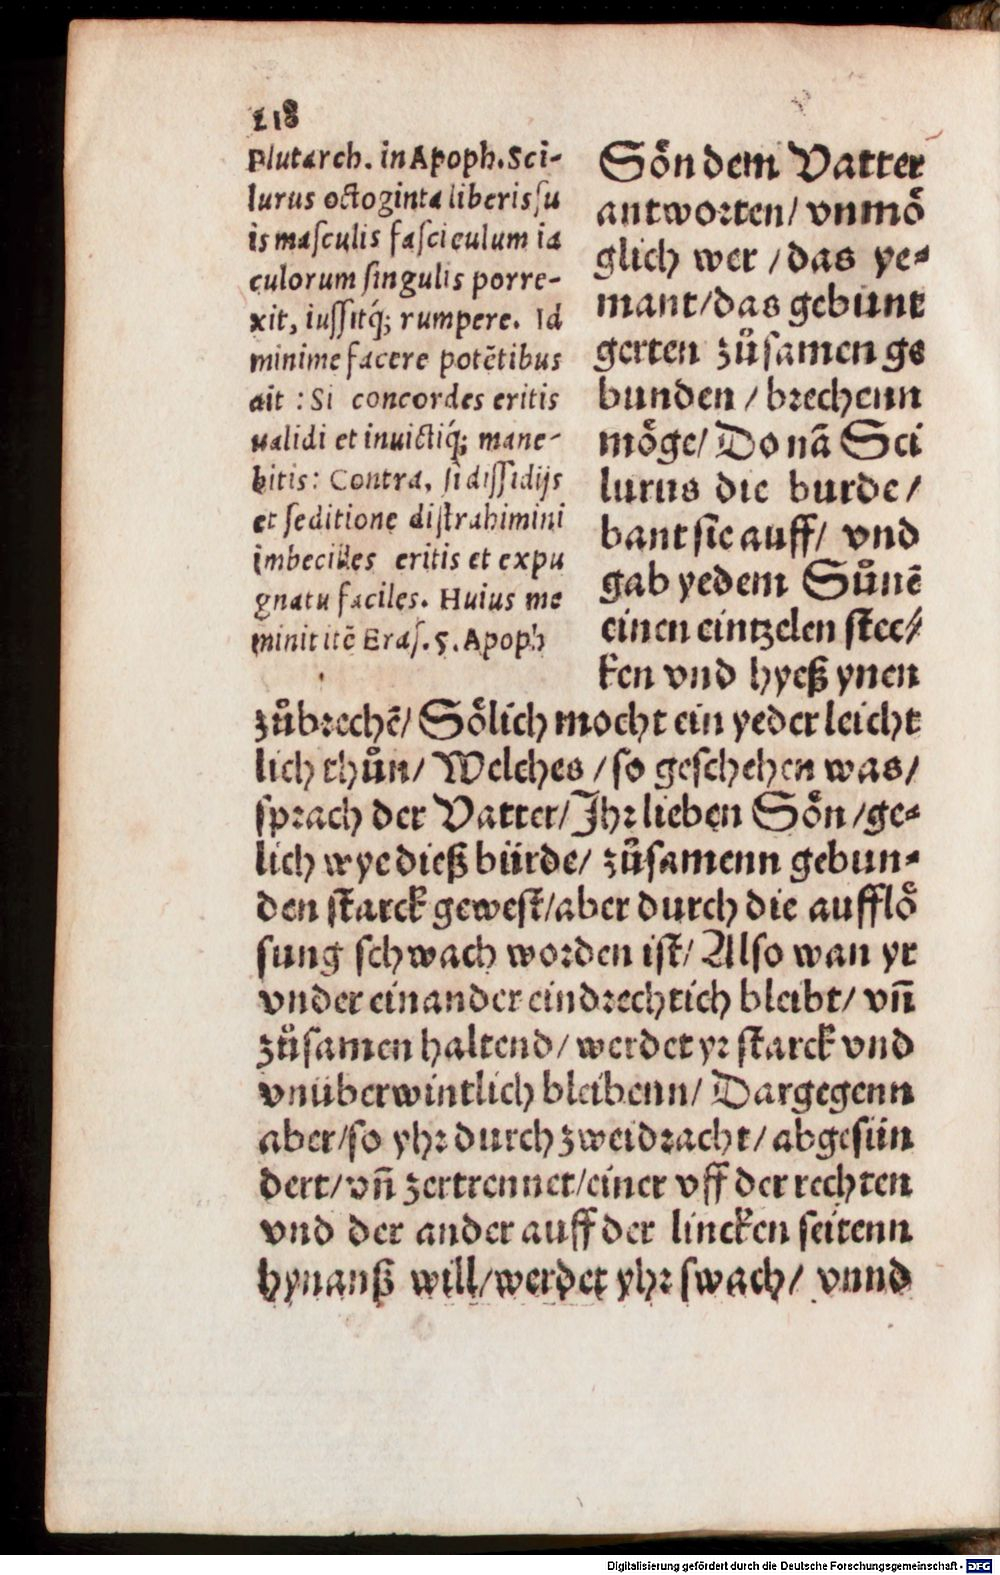 218
Plutarch. in Apoph. Sci-
lurus octoginta liberis ſu
is maſculis faſciculum ia
culorum ſingulis porre-
xit, iuſſitq́; rumpere. Id
minime facere potētibus
ait : Si concordes eritis
ualidi et inuictiq́; mane-
bitis: Contra, ſi diſſidijs
et ſeditione diſtrahimini
imbecilles eritis et expu
gnatu faciles. Huius me
minit itē Eraſ. 5. Apoph
Soͤn dem Vatter
antworten/ vnmoͤ
glich wer / das ye⸗
mant/das gebunt
gerten zuͦſamen ge
bunden / brechenn
moͤge/ Do nã Sci
lurus die burde /
bant ſie auff/ vnd
gab yedem Suͦnē
einen eintzelen ſtec⸗
ken vnd hyeß ynen
zuͦbrechē/ Soͤlich mocht ein yeder leicht
lich thuͦn/ Welches / ſo geſchehen was/
ſprach der Vatter/ Jhr lieben Soͤn /ge⸗
lich wye dieß buͤrde/ zuͦſamenn gebun⸗
den ſtarck geweſt/aber durch die auffloͤ
ſung ſchwach worden iſt/ Alſo wan yr
vnder einander eindrechtich bleibt/ vñ
zuͦſamen haltend/ werdet yr ſtarck vnd
vnuͤberwintlich bleibenn/ Dargegenn
aber/ſo yhr durch zweidracht/ abgeſuͤn
dert/vñ zertrennet/einer vff der rechten
vnd der ander auff der lincken ſeitenn
hynanß will/werdet yhr ſwach/ vnnd
Digitalisierung gefördert durch die Deutsche Forschungsgemeinschaft - DFG